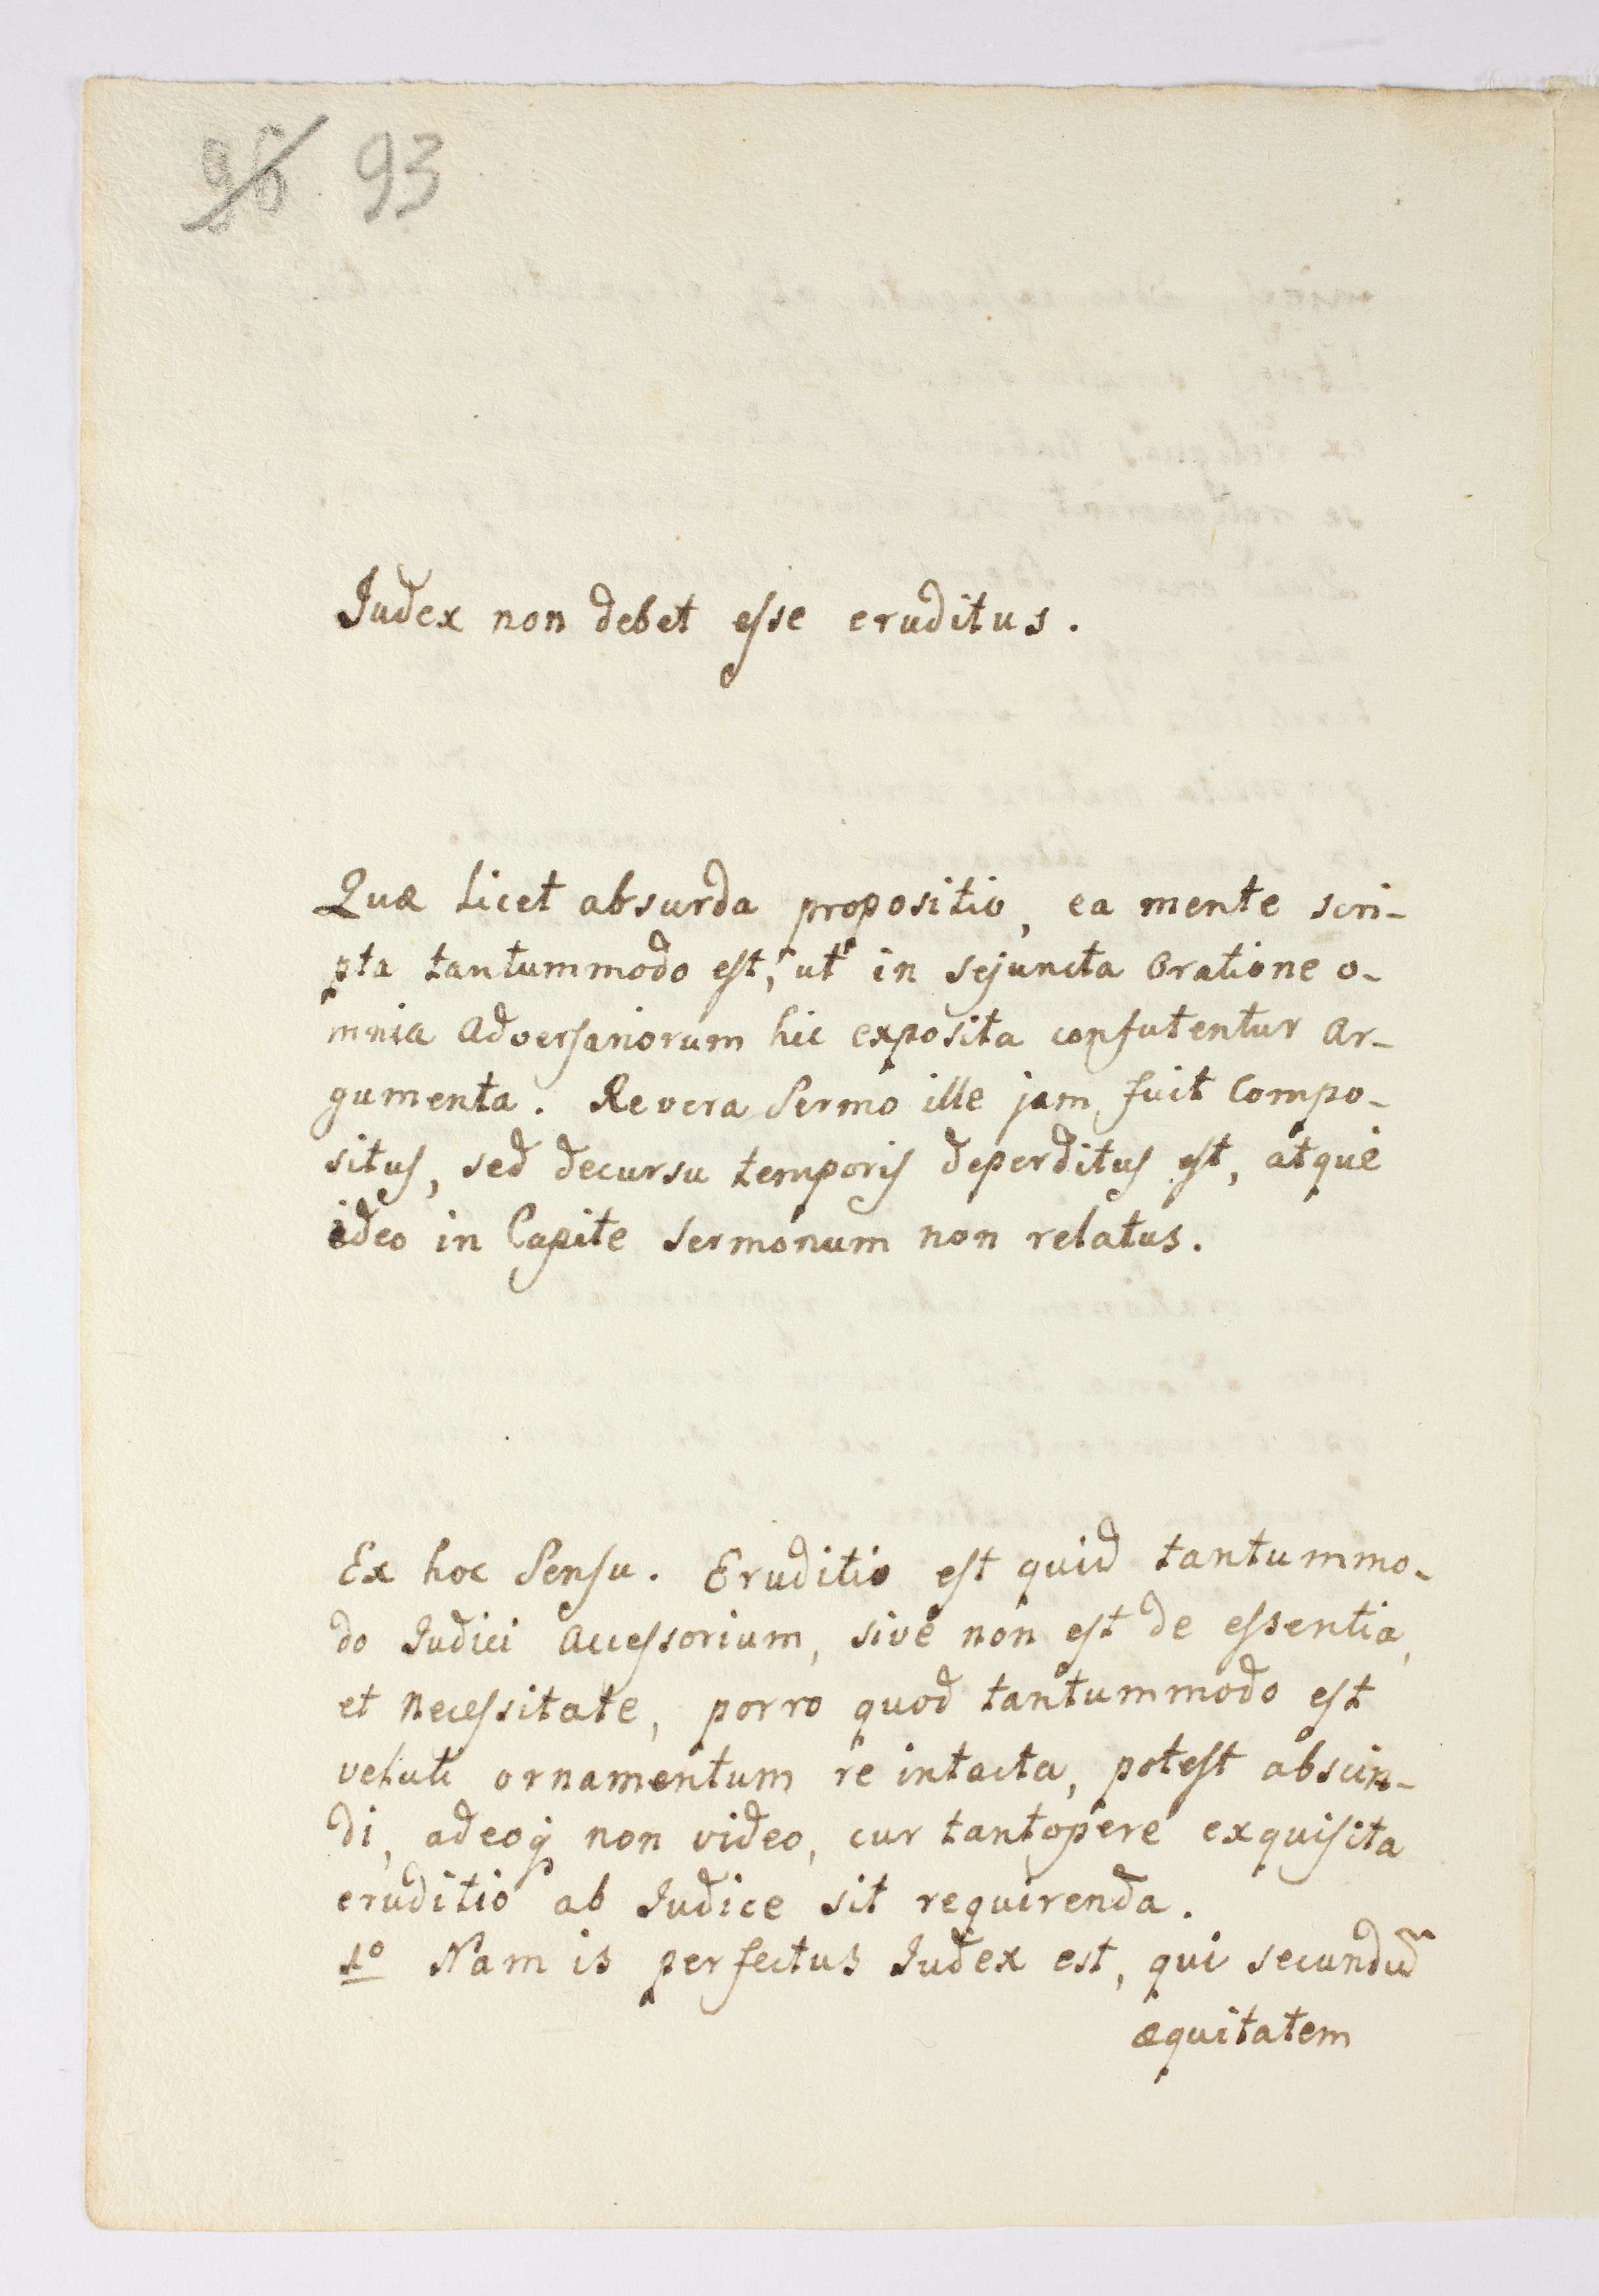 96 93
Iudex non debet esse eruditus.
Quæ licet absurda propositio, ea mente scri-
pta tantummodo est, ut in sejuncta Oratione o-
mnia Adversariorum hic exposita confutentur Ar-
gumenta. Revera Sermo ille jam fuit Compo-
situs, sed decursu temporis deperditus est, atque
ideo in Capite Sermonum non relatus.
Ex hoc Sensu. Eruditio est quid tantummo-
do Iudici Accessorium, sive non est de essentia,
et necessitate, porro quod tantummodo est
veluti ornamentum re intacta, potest abscin-
di, adeoq non video, cur tantopere exquisita
eruditio ab Iudice sit requirenda.
1º Nam is perfectus Iudex est, qui secundu̅
æquitatem